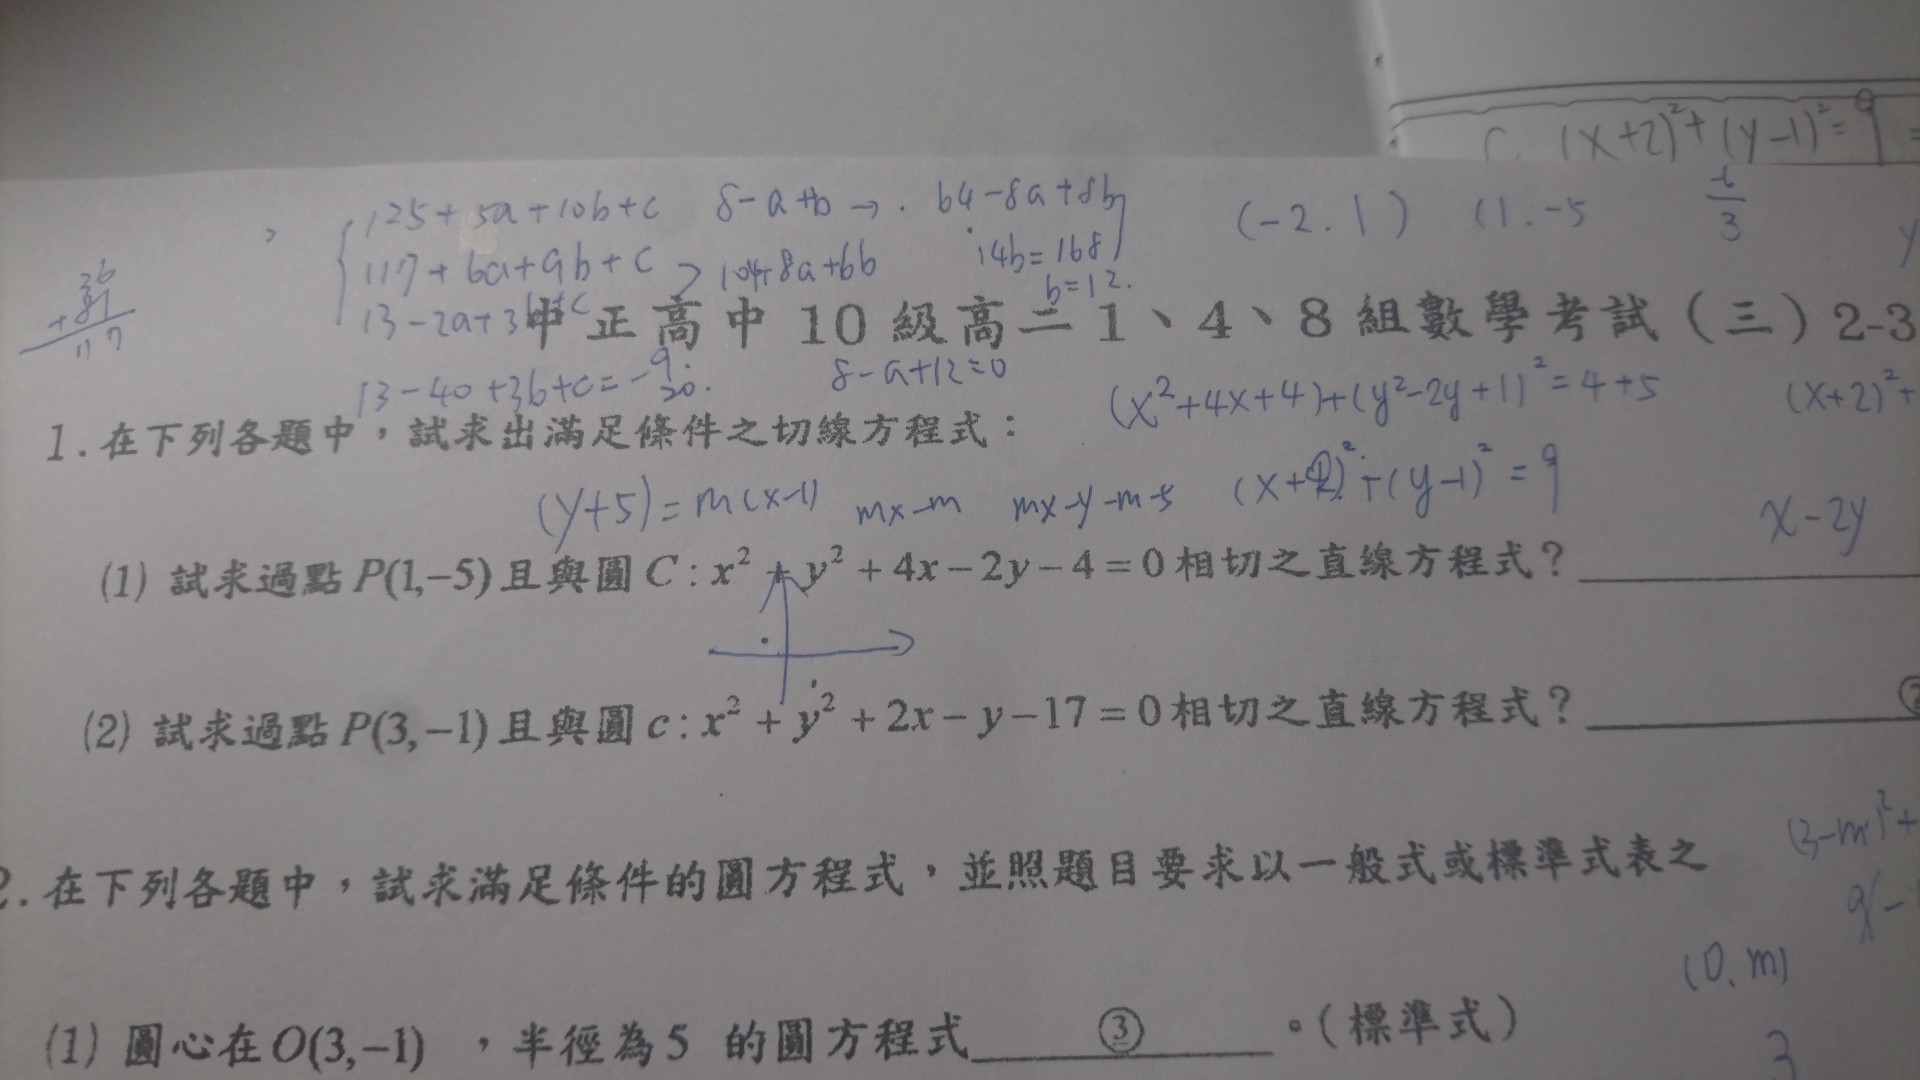 C: (x+2)²+(y-1)²=9
125+5a+10b+c 8-a+b → 64-8a+8b (-2.1) (1.-5
117+6a+9b+c > 104+8a+6b 14b=168
36
+81
117
b=12.
13-2a+3b+c
中正高中 10 級高二 1、4、8 組數學考試（三）2-3
13-40+36+c=-9. 8-a+12=0
20.
(x²+4x+4)+(y²-2y+1)²=4+5 (x+2)²+
1.在下列各題中，試求出滿足條件之切線方程式：
(y+5)=m(x-1) mx-m mx-y-m-5 (x+2)²+(y-1)²=9
x-2y
(1) 試求過點P(1,-5)且與圓C:x²+y²+4x-2y-4=0相切之直線方程式？
(2) 試求過點P(3,-1)且與圓c:x²+y²+2x-y-17=0相切之直線方程式？
(3-m)²+
2.在下列各題中，試求滿足條件的圓方程式，並照題目要求以一般式或標準式表之
9-
(0.m)
(1) 圓心在O(3,-1) ，半徑為5 的圓方程式 ③ 。(標準式)
3